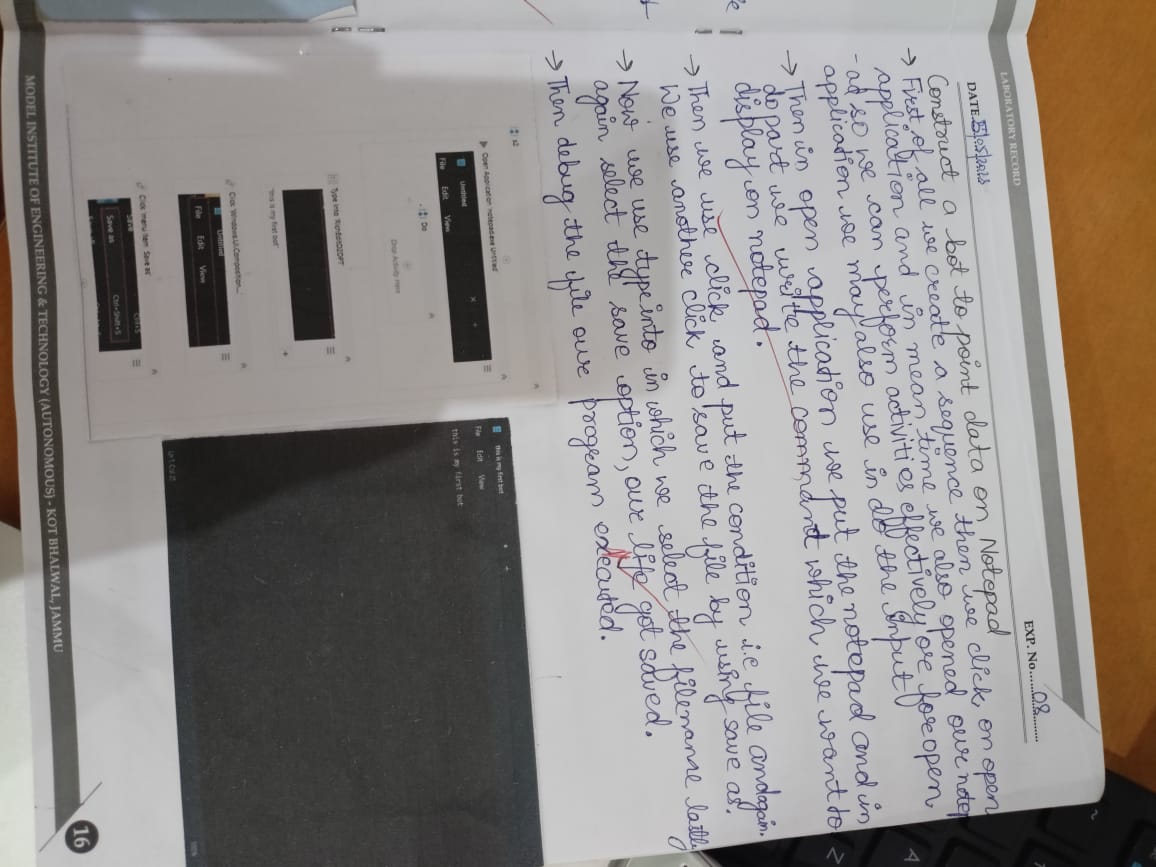 LABORATORY RECORD
EXP. No. 08
DATE 5/05/2023
Construct a bot to point data on Notepad
→ First of all we create a sequence then we click on open
application and in mean time we also opened our notep
-ad so we can perform activities effectively or for open
application we may also use in do the input
→ Then in open application we put the notepad and in
do part we write the command which we want to
display on notepad.
→ Then we use click and put the condition i.e file and again
We use another click to save the file by using save as.
→ Now we use type into in which we select the filename lastly
again select the save option, our life got saved.
→ Then debug the file our program executed.
s2
Open Application 'notepad.exe Untitled'
Untitled
File Edit View
Do
Drop Activity Here
Type Into 'RichEditD2DPT'
"this is my first bot"
Click 'Windows.UI.Composition...
Untitled
File Edit View
Click 'menu item Save as'
Save Ctrl+S
Save as Ctrl+Shift+S
this is my first bot
File Edit View
this is my first bot
MODEL INSTITUTE OF ENGINEERING & TECHNOLOGY (AUTONOMOUS) - KOT BHALWAL, JAMMU
16